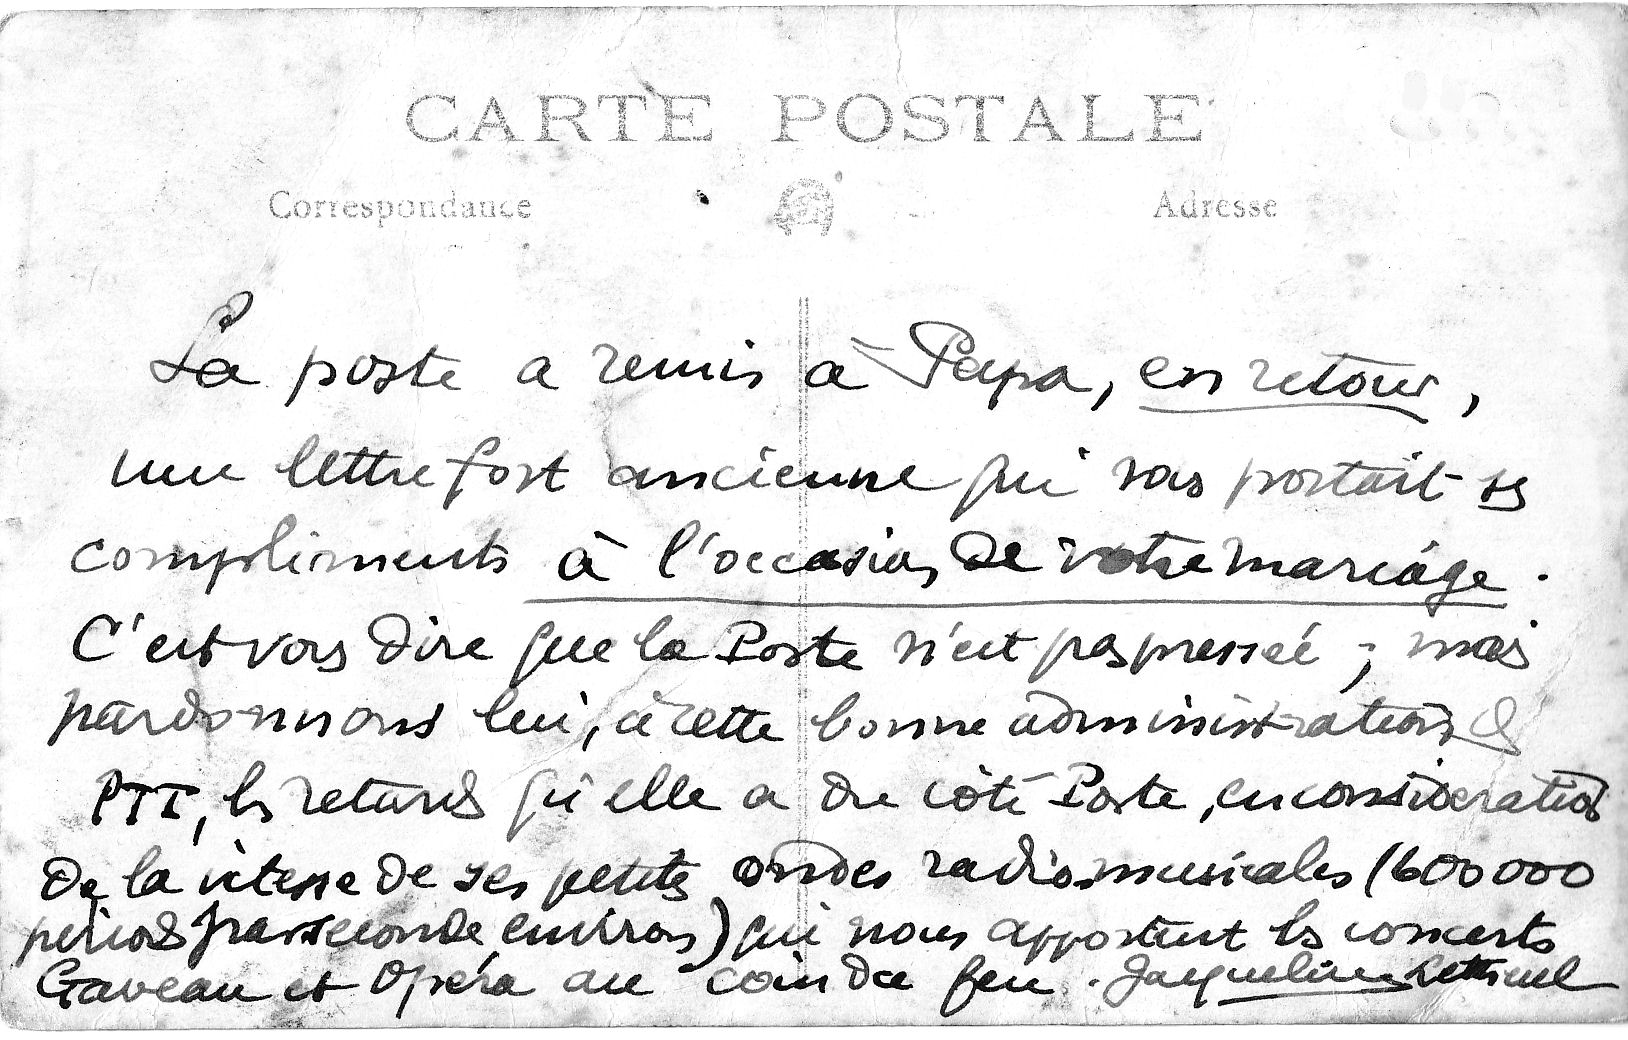 CARTE POSTALE
Correspondance Adresse
La poste a remis à Papa, en retour,
une lettre fort ancienne qui vous portait ses
compliments à l'occasion de votre mariage.
C'est vous dire que la Poste n'est pas pressée ; mais
pardonnons lui, à cette bonne administration des
PTT, les retards qu'elle a du côté Poste, en considération
de la vitesse de ses petites ondes radio-musicales (600 000
périodes par seconde environ) qui nous apportent les concerts
Gaveau et Opéra au coin du feu. Jacqueline